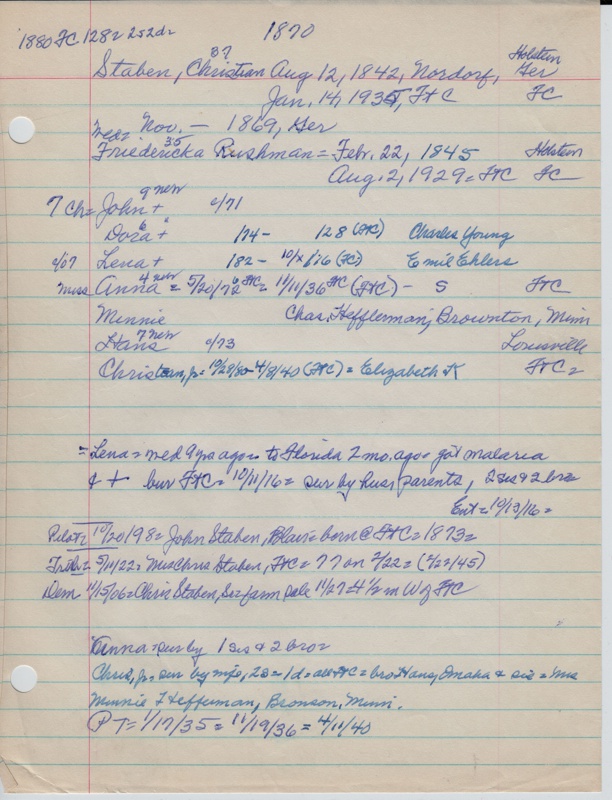 1880 FC 128= 252d= 1870
37 Holstein
Staben, Christian Aug 12, 1842, Nordorf, Ger
Jan. 14, 1935, FtC FC
med= Nov. — 1869, Ger
35
Friedericka Rushman = Febr. 22, 1845 Holstein
Aug. 2, 1929 = FtC FC
9 new
7 Ch = John + c/71
6
Dora + /74 - 128 (FtC) Charles Young
c/07 Lena + /82 - 10/x/16 (FC) Emil Ehlers
4 new
Miss Anna = 5/20/72 FtC = 11/11/36 FtC (FtC) - S FtC
Minnie Chas. Heffferman, Brownton, Minn
7 new
Hans c/73 Louisville
Christian, Jr = 10/29/80 - 4/8/40 (FtC) = Elizabeth K FtC =
= Lena = med 9 yrs ago = to Florida 2 mo. ago = got malaria
& + bur FtC = 10/11/16 = sur by hus, parents, 2 sis & 2 bro=
Ent = 10/13/16 =
Pilot = 10/20/98 = John Staben, Blair = born @ FtC = 1873 =
Trib = 5/11/22 = Mrs Chris Staben, FtC = 77 on 2/22 = (2/22/45)
Dem 11/15/06 = Chris Staben, Sr = farm sale 11/27 = 4 1/2 m W of FtC
Anna = sur by 1 sis & 2 bro=
Chris, Jr = sur by wife, 2s = 1d = all FtC = bro Hans, Omaha & sis = Mrs
Minnie F Hefferman, Bronson, Minn.
PT = 1/17/35 = 11/19/36 = 4/11/40